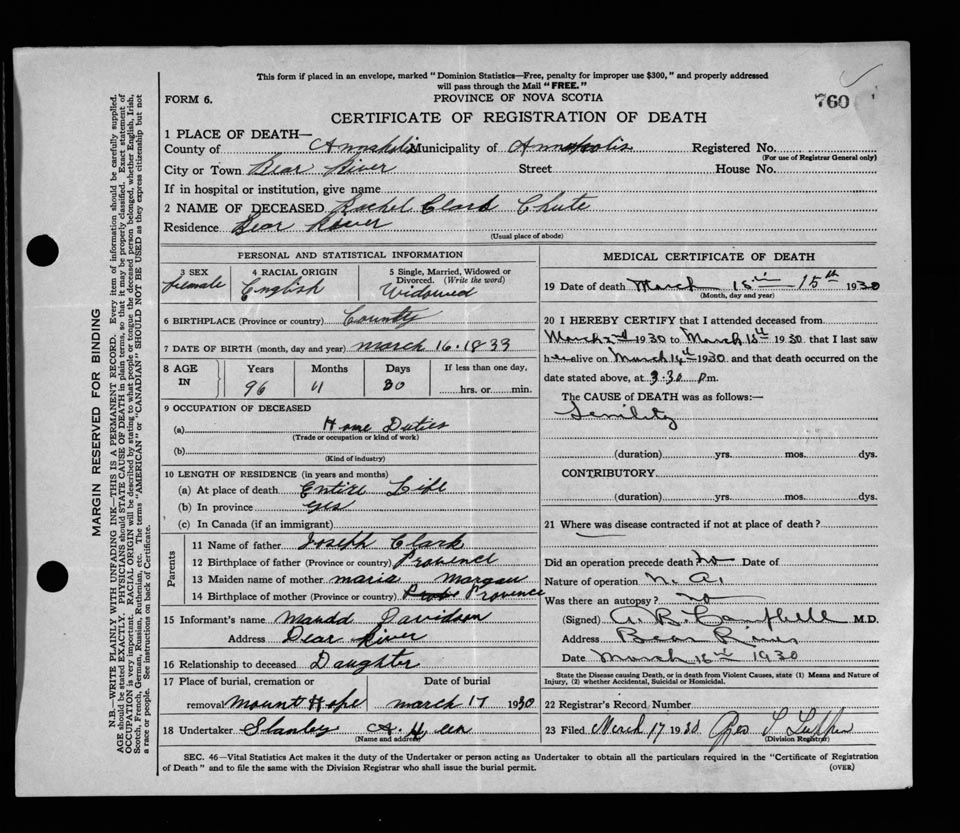 This form if placed in an envelope, marked "Dominion Statistics—Free, penalty for improper use $300," and properly addressed
will pass through the Mail "FREE."
FORM 6.
PROVINCE OF NOVA SCOTIA
760
CERTIFICATE OF REGISTRATION OF DEATH
1 PLACE OF DEATH—
County of Municipality of Annapolis Registered No.
(For use of Registrar General only)
City or Town Bear River Street House No.
If in hospital or institution, give name
2 NAME OF DECEASED Rachel Clark Chute
Residence Bear River
(Usual place of abode)
PERSONAL AND STATISTICAL INFORMATION
3 SEX 4 RACIAL ORIGIN 5 Single, Married, Widowed or
Divorced. (Write the word)
female English Widowed
6 BIRTHPLACE (Province or country) County
7 DATE OF BIRTH (month, day and year) march 16. 1833
8 AGE IN Years Months Days If less than one day,
96 11 30 hrs. or min.
9 OCCUPATION OF DECEASED
(a) Home Duties
(Trade or occupation or kind of work)
(b)
(Kind of industry)
10 LENGTH OF RESIDENCE (in years and months)
(a) At place of death Entire Life
(b) In province yes
(c) In Canada (if an immigrant)
Parents
11 Name of father Joseph Clark
12 Birthplace of father (Province or country) Provence
13 Maiden name of mother maria Morgan
14 Birthplace of mother (Province or country) Provence
15 Informant's name Maudd Davidson
Address Bear River
16 Relationship to deceased Daughter
17 Place of burial, cremation or Date of burial
removal Mount Hope march 17 1930
18 Undertaker Stanley A.
(Name and address)
MEDICAL CERTIFICATE OF DEATH
19 Date of death March 15th 15th 1930
(Month, day and year)
20 I HEREBY CERTIFY that I attended deceased from
March 2nd 1930 to March 15th 1930 that I last saw
her alive on March 14th 1930 and that death occurred on the
date stated above, at 3.30 pm.
The CAUSE of DEATH was as follows:—
Senility
(duration) yrs. mos. dys.
CONTRIBUTORY.
(duration) yrs. mos. dys.
21 Where was disease contracted if not at place of death?
Did an operation precede death? no Date of
Nature of operation N. A.
Was there an autopsy? no
(Signed) A. B. Campbell M.D.
Address Bear River
Date March 16th 1930
State the Disease causing Death, or in death from Violent Causes, state (1) Means and Nature of
Injury, (2) whether Accidental, Suicidal or Homicidal.
22 Registrar's Record Number
23 Filed March 17 1930 Geo S
(Division Registrar)
SEC. 46—Vital Statistics Act makes it the duty of the Undertaker or person acting as Undertaker to obtain all the particulars required in the "Certificate of Registration
of Death" and to file the same with the Division Registrar who shall issue the burial permit.
(OVER)
MARGIN RESERVED FOR BINDING
N.B.—WRITE PLAINLY WITH UNFADING INK—THIS IS A PERMANENT RECORD. Every item of information should be carefully supplied.
AGE should be stated EXACTLY. PHYSICIANS should STATE CAUSE OF DEATH in plain terms, so that it may be properly classified. Exact statement of
OCCUPATION is very important. RACIAL ORIGIN will be described by stating to what people or tongue the deceased person belonged, whether English, Irish,
Scotch, French, German, Russian, Ruthenian, etc. The terms "AMERICAN" or "CANADIAN" SHOULD NOT BE USED as they express citizenship but not
a race or people. See instructions on back of Certificate.